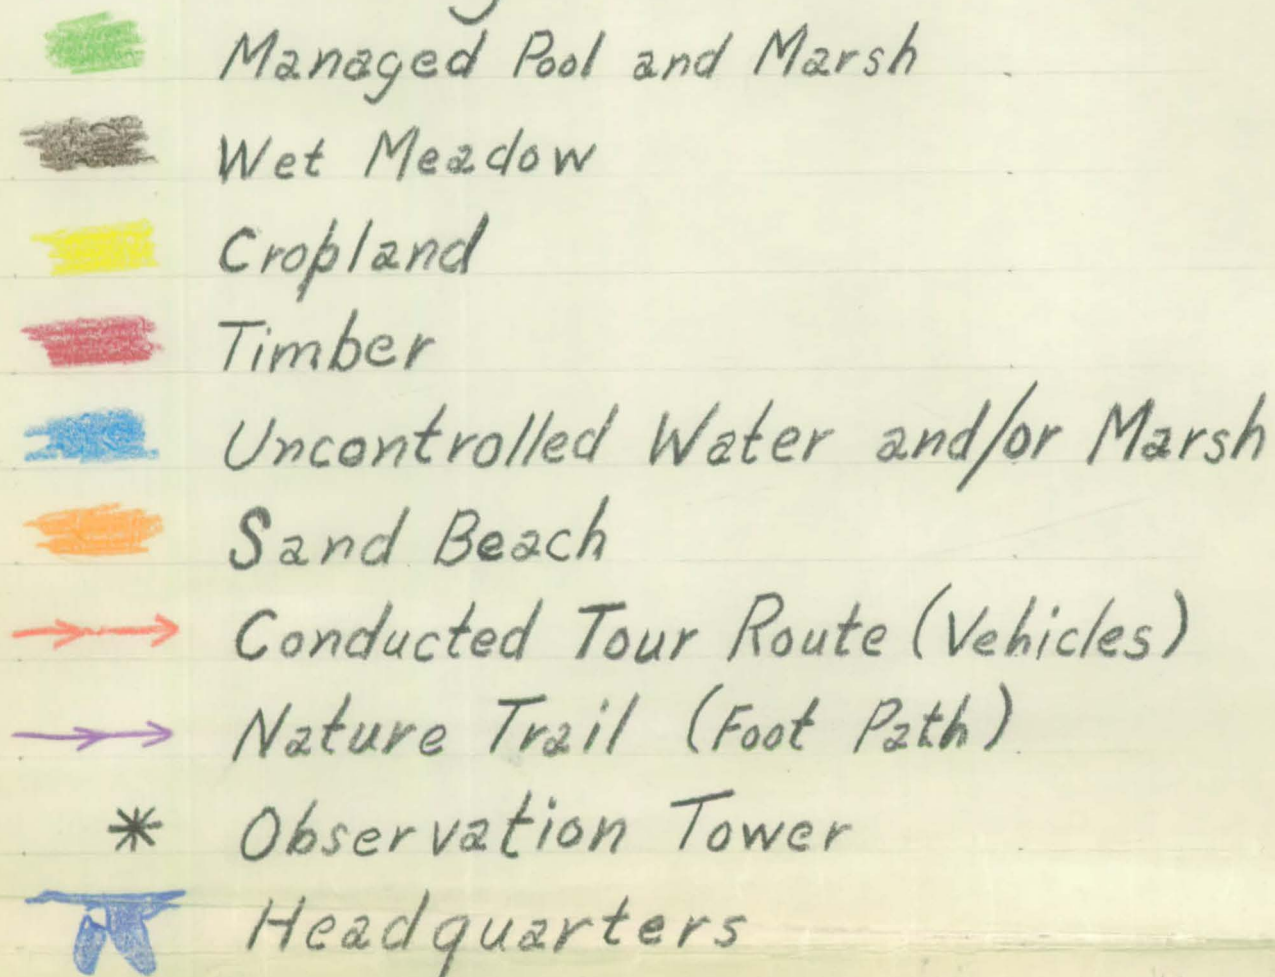 Managed Pool and Marsh
Wet Meadow
Cropland
Timber
Uncontrolled Water and/or Marsh
Sand Beach
Conducted Tour Route (Vehicles)
Nature Trail (Foot Path)
Observation Tower
Headquarters